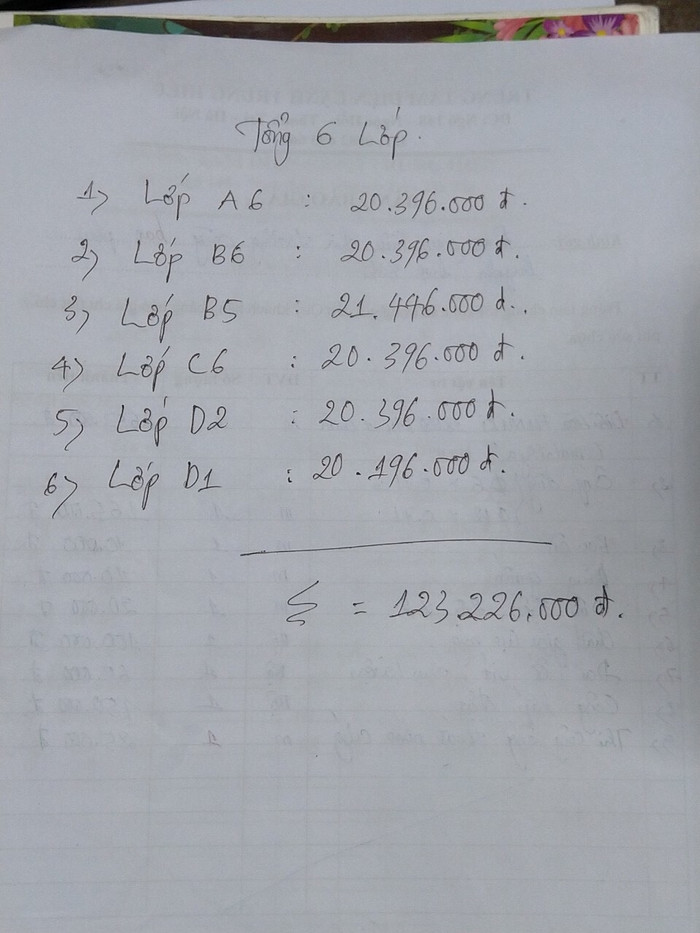 Tổng 6 Lớp.
1) Lớp A6 : 20.396.000 đ.
2) Lớp B6 : 20.396.000 đ.
3) Lớp B5 : 21.446.000 đ..
4) Lớp C6 : 20.396.000 đ.
5) Lớp D2 : 20.396.000 đ.
6) Lớp D1 : 20.196.000 đ.
Σ = 123.226.000 đ.